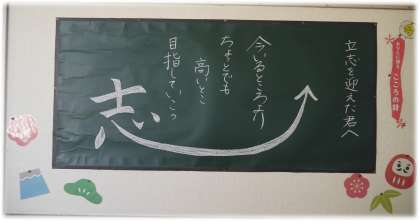 立志を迎えた君へ
今いるところより
ちょっとでも
高いとこ
目指していこう
志
こころの詩